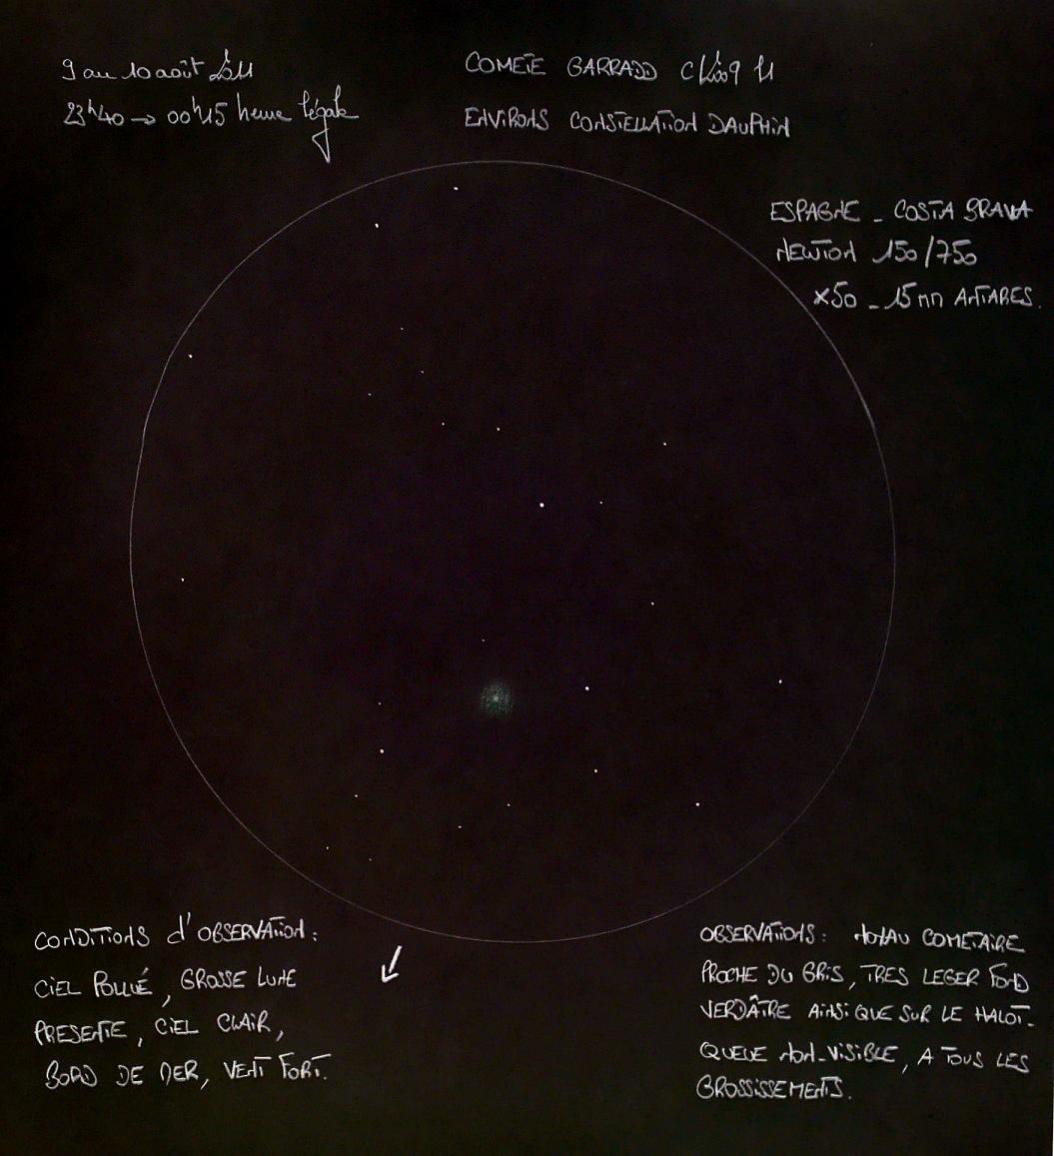 9 au 10 août 2011
23h40 → 00h15 heure légale
COMETE GARRADD C/2009 P1
ENVIRONS CONSTELLATION DAUPHIN
ESPAGNE - COSTA BRAVA
NEWTON 150/750
x50 - 15mm ANTARES.
CONDITIONS d'OBSERVATION:
CIEL POLLUÉ, GROSSE LUNE
PRESENTE, CIEL CLAIR,
BORD DE MER, VENT FORT.
OBSERVATIONS: NOYAU COMETAIRE
PROCHE DU GRIS, TRES LEGER FOND
VERDÂTRE AINSI QUE SUR LE HALOT-
QUEUE NON-VISIBLE, A TOUS LES
GROSSISSEMENTS.